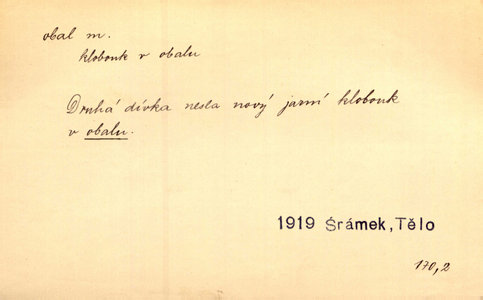 obal m.
klobouk v obalu
Druhá dívka nesla nový jarní klobouk
v obalu.
1919 Šrámek, Tělo
170,2